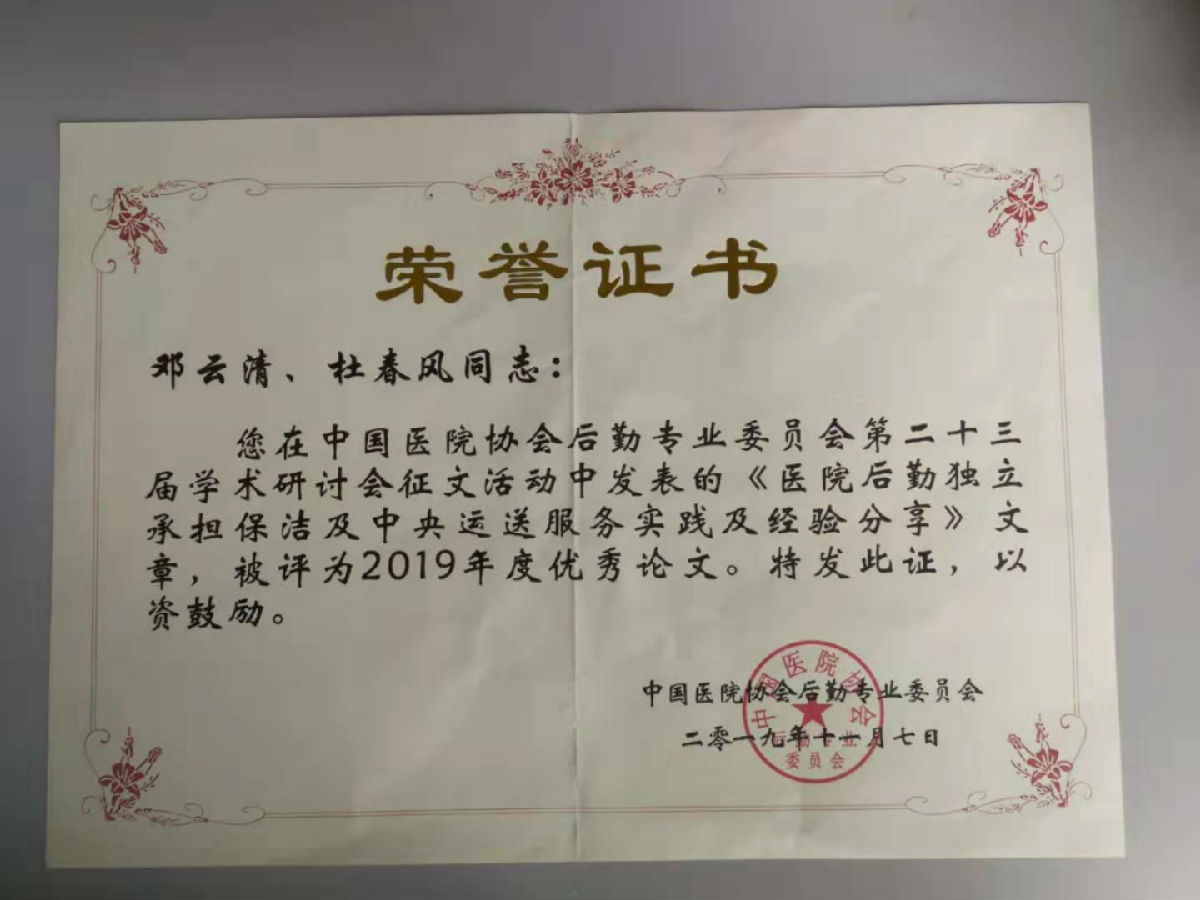 荣誉证书
邓云清、杜春风同志：
您在中国医院协会后勤专业委员会第二十三
届学术研讨会征文活动中发表的《医院后勤独立
承担保洁及中央运送服务实践及经验分享》文
章，被评为2019年度优秀论文。特发此证，以
资鼓励。
中国医院协会后勤专业委员会
二零一九年十一月七日
中国医院协会
后勤专业
委员会